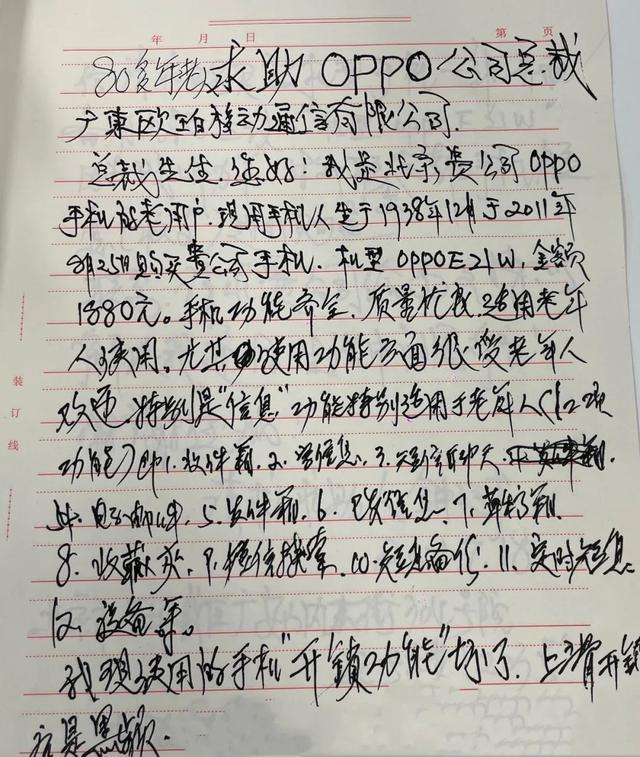 年 月 日 第 页
80多年老人求助OPPO公司总裁
广东欧珀移动通信有限公司.
总裁先生,您好!我是北京贵公司OPPO
手机的老用户.现用手机人生于1938年12月于2011年
8月25日购买贵公司手机.机型OPPOE21W,金额
1880元。手机功能齐全,质量优良,适用老年
人使用.尤其使用功能方面很受老年人
欢迎特别是"信息"功能特别适用于老年人(12项
功能)即1.收件箱.2.写信息.3.短信聊天.
4.电子邮件.5.发件箱.6.已发信息.7.草稿箱.
8.收藏夹.9.短信搜索.10.短信备份.11.定时短信.
12.设备等。
我现使用的手机"开鎖功能"坏了.上方滑开鎖
方是黑频.
装订线